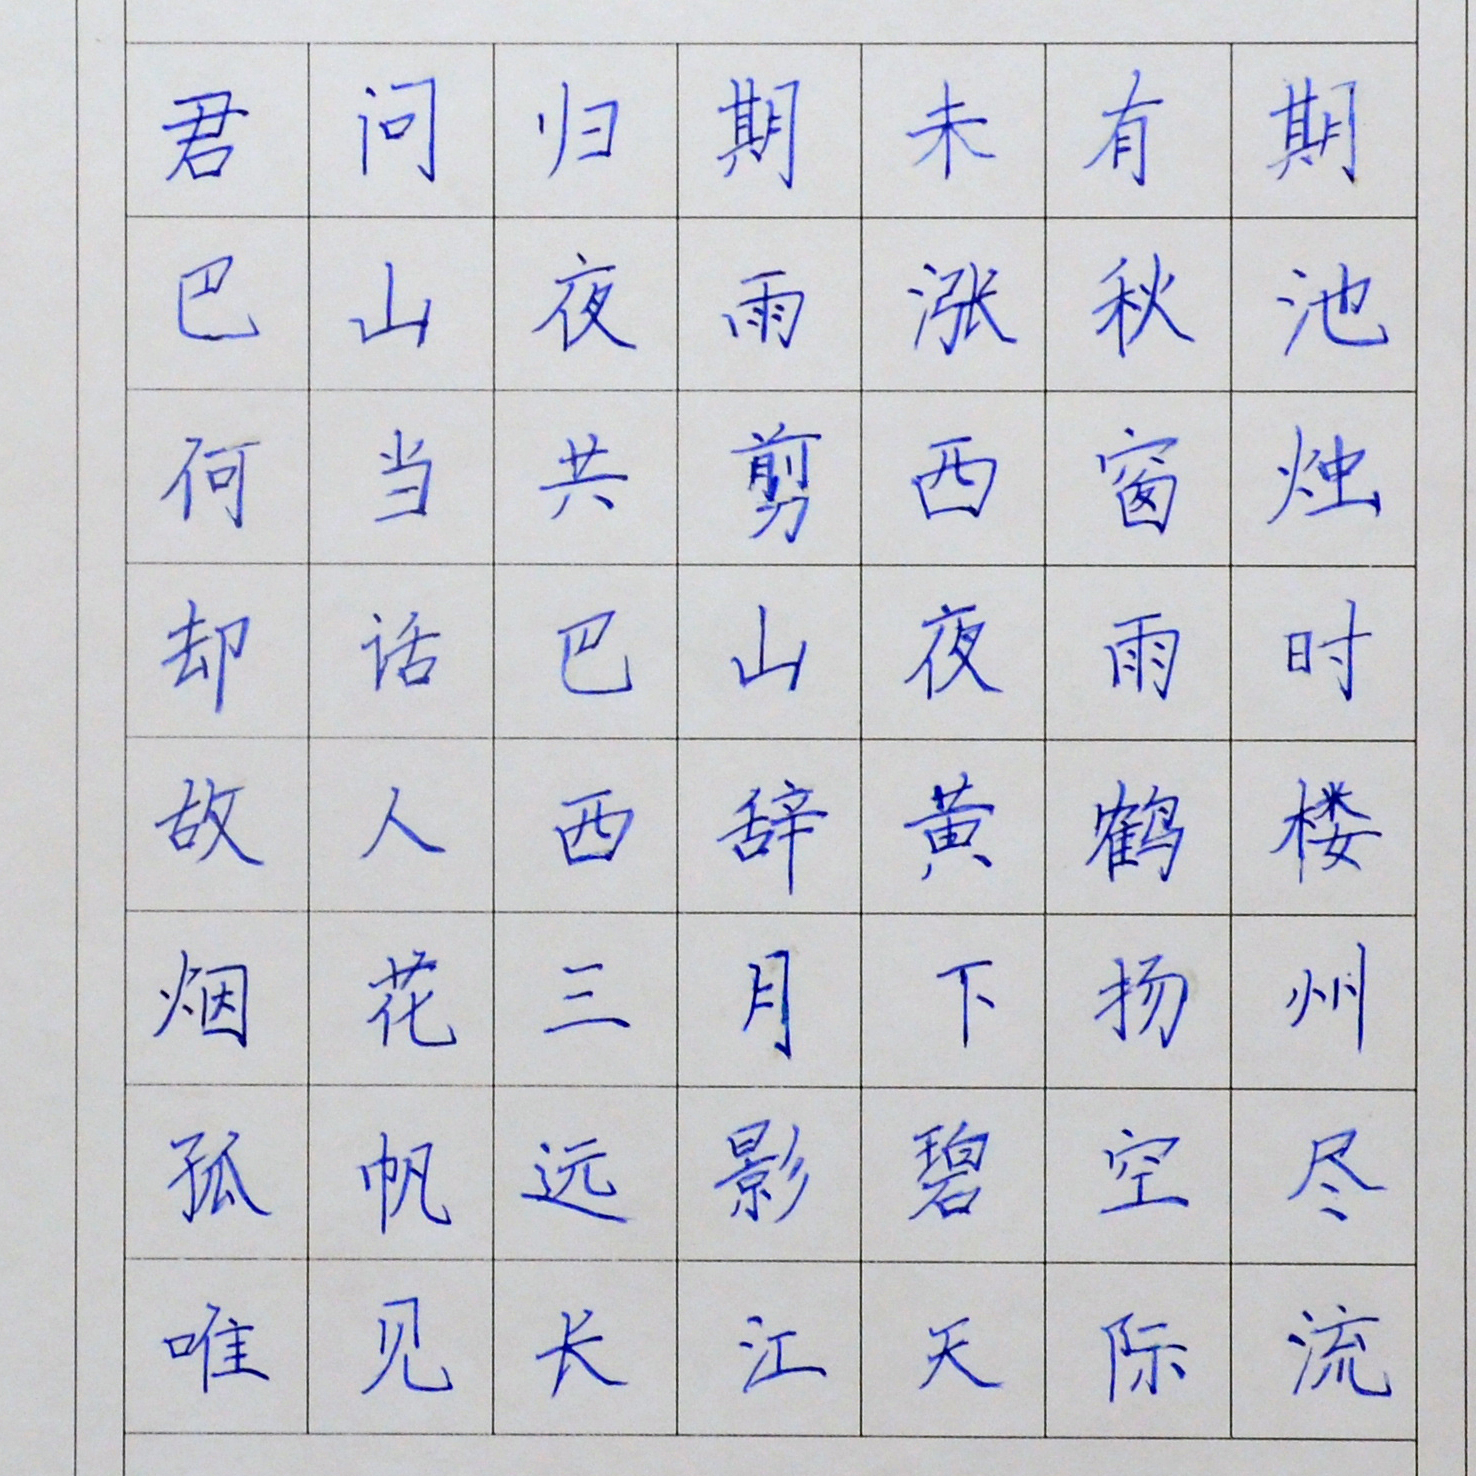 君问归期未有期
巴山夜雨涨秋池
何当共剪西窗烛
却话巴山夜雨时
故人西辞黄鹤楼
烟花三月下扬州
孤帆远影碧空尽
唯见长江天际流